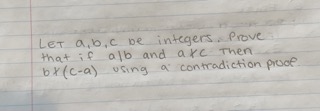 Let a,b,c be integers. Prove
that if a|b and a∤c then
b∤(c-a) using a contradiction proof